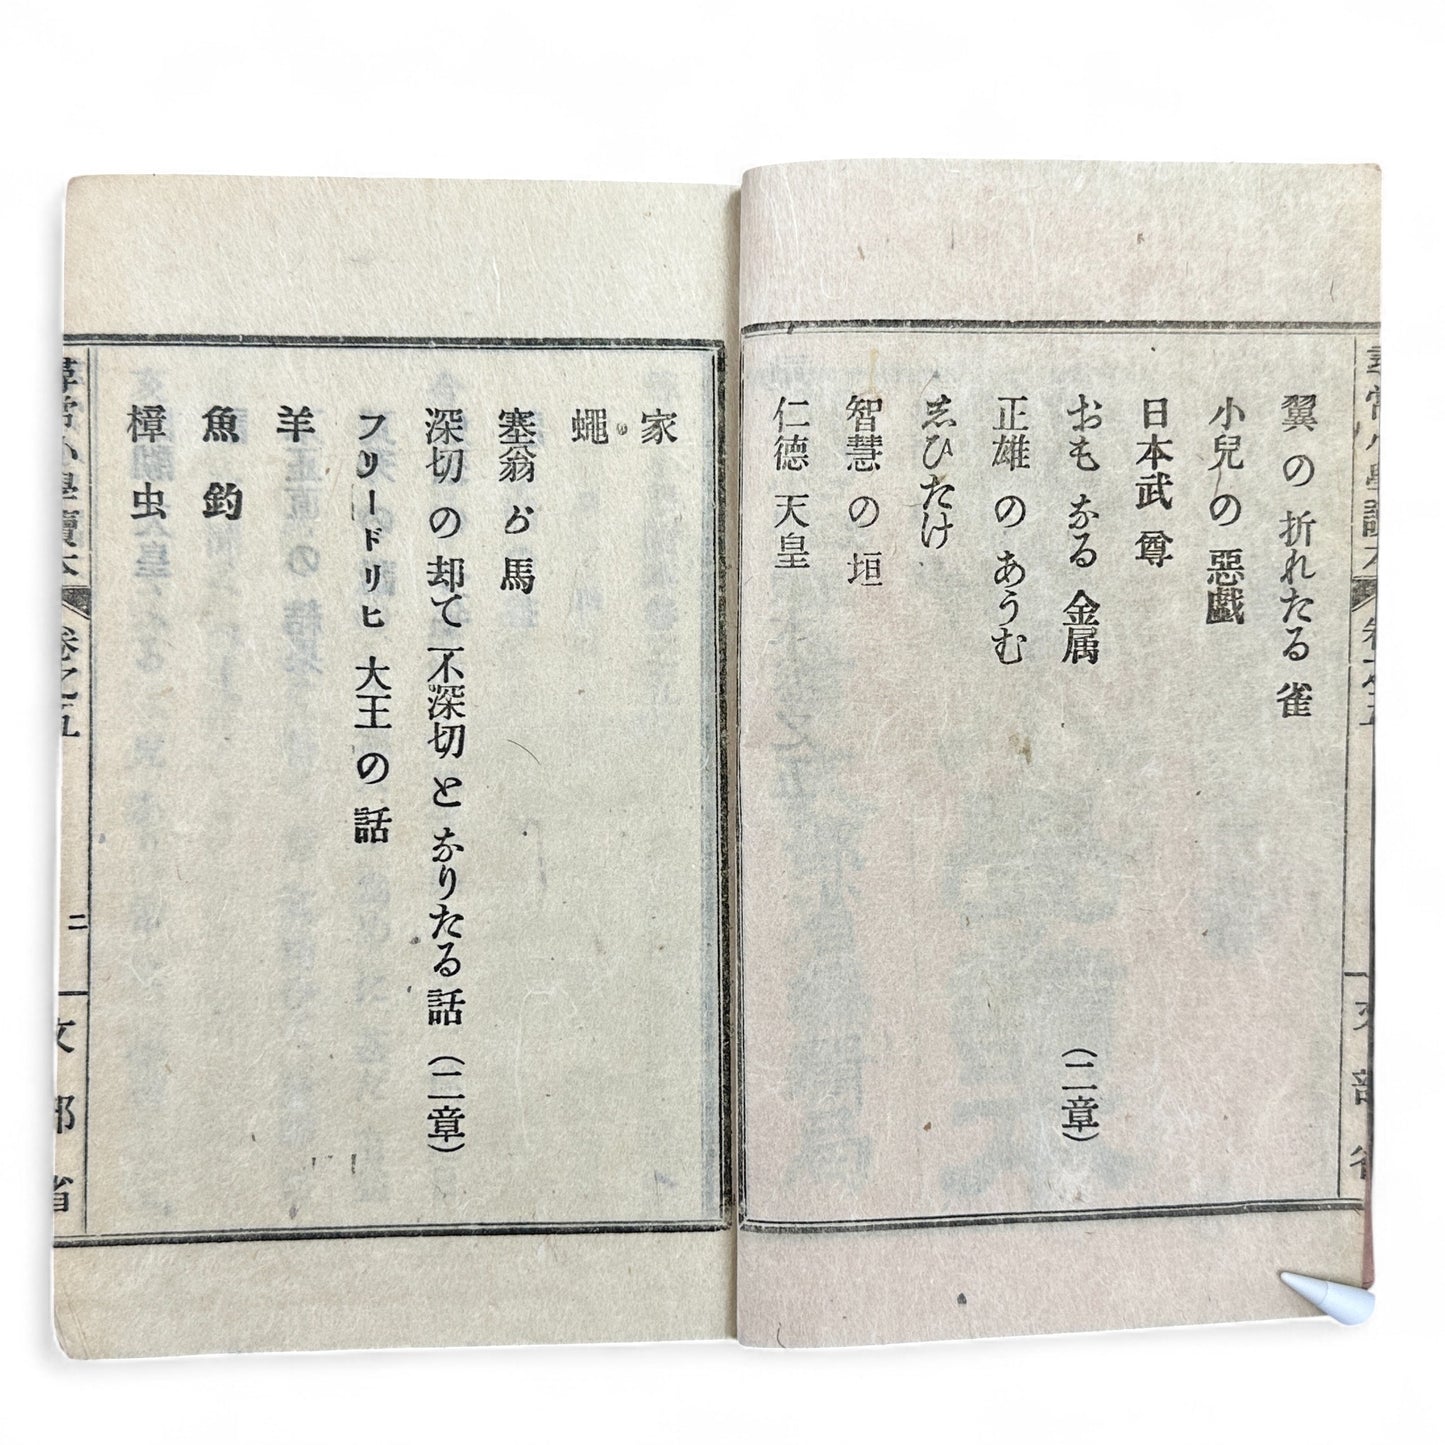 翼の折れたる雀
小兒の惡戯
日本武尊
おもなる金属（二章）
正雄のあうむ
志ひたけ
智慧の垣
仁德天皇
家
蠅
塞翁が馬
深切の却て不深切となりたる話（二章）
フリードリヒ大王の話
羊
魚釣
樟虫
尋常小學讀本
卷之五
二
文部省